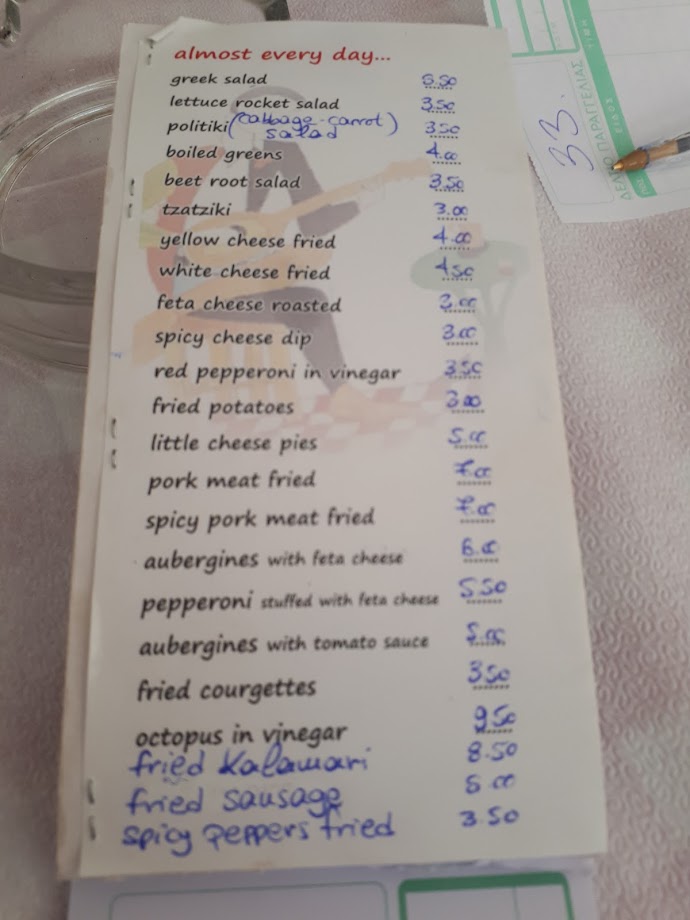 almost every day...
greek salad 5.50
lettuce rocket salad 3.50
politiki (cabbage-carrot salad) 3.50
boiled greens 4.00
beet root salad 3.50
tzatziki 3.00
yellow cheese fried 4.00
white cheese fried 4.50
feta cheese roasted 3.00
spicy cheese dip 3.00
red pepperoni in vinegar 3.50
fried potatoes 3.00
little cheese pies 5.00
pork meat fried 7.00
spicy pork meat fried 7.00
aubergines with feta cheese 6.00
pepperoni stuffed with feta cheese 5.50
aubergines with tomato sauce 5.00
fried courgettes 3.50
octopus in vinegar 9.50
fried kalamari 8.50
fried sausage 5.00
spicy peppers fried 3.50
33.
ΔΕΛΤΙΟ ΠΑΡΑΓΓΕΛΙΑΣ
ΕΙΔΟΣ
ΤΙΜΗ